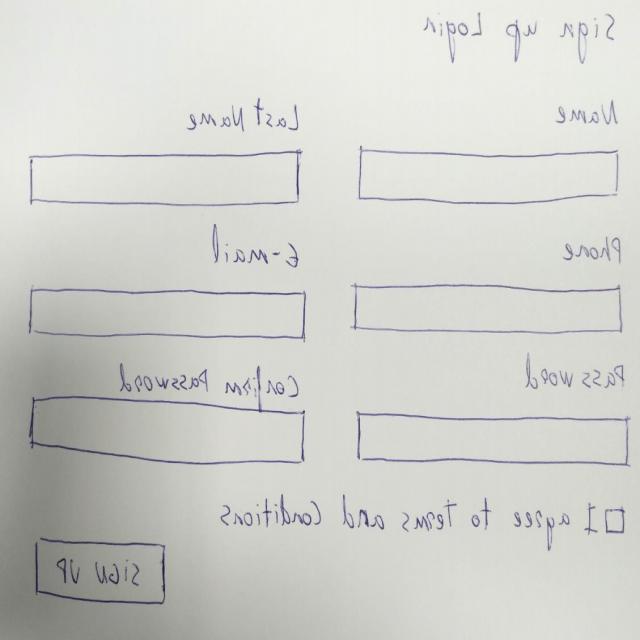 Sign up Login
Name Last Name
Phone E-mail
Password Confirm Password
I agree to Terms and Conditions
SIGN UP